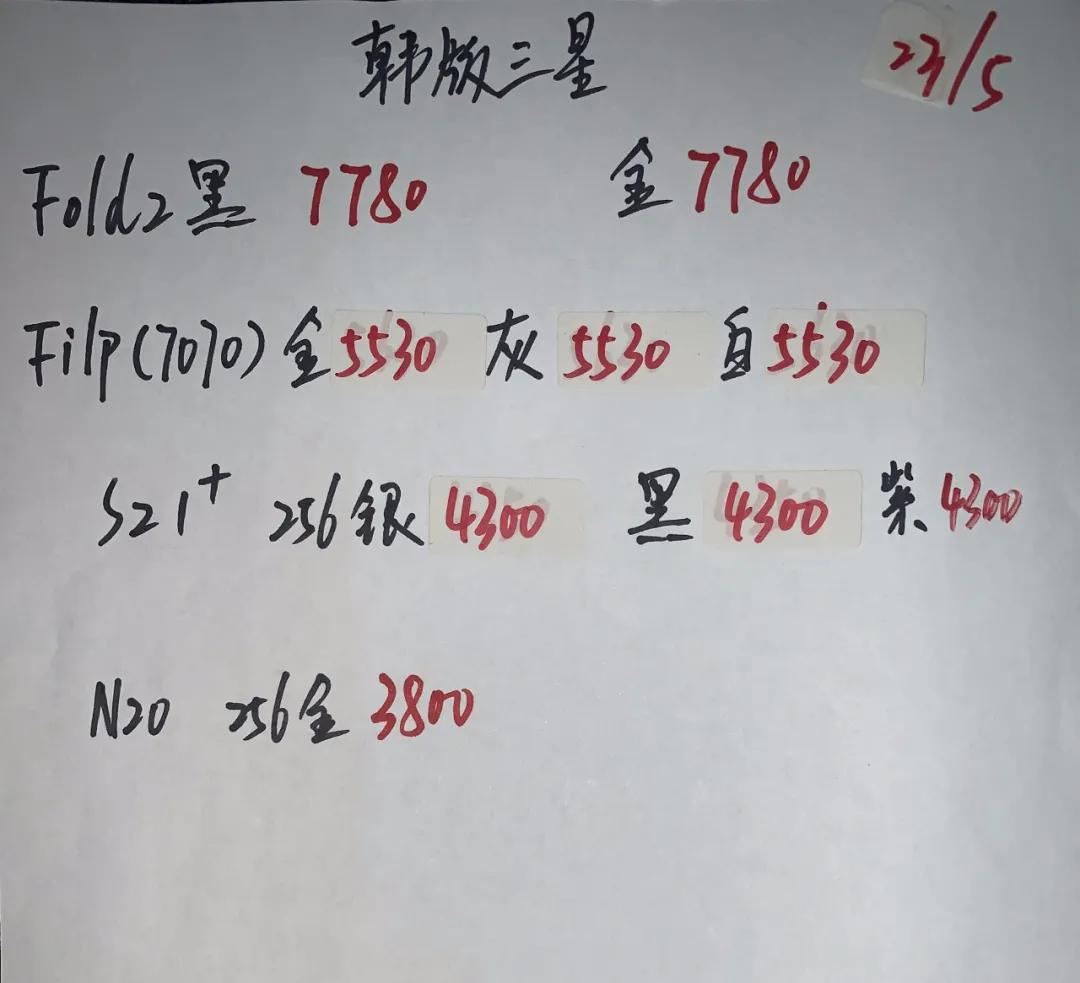 韩版三星 23/5
Fold2黑 7780 金7780
Filp(7070)金5530 灰5530 白5530
S21+ 256銀4300 黑4300 紫4300
N20 256金3800